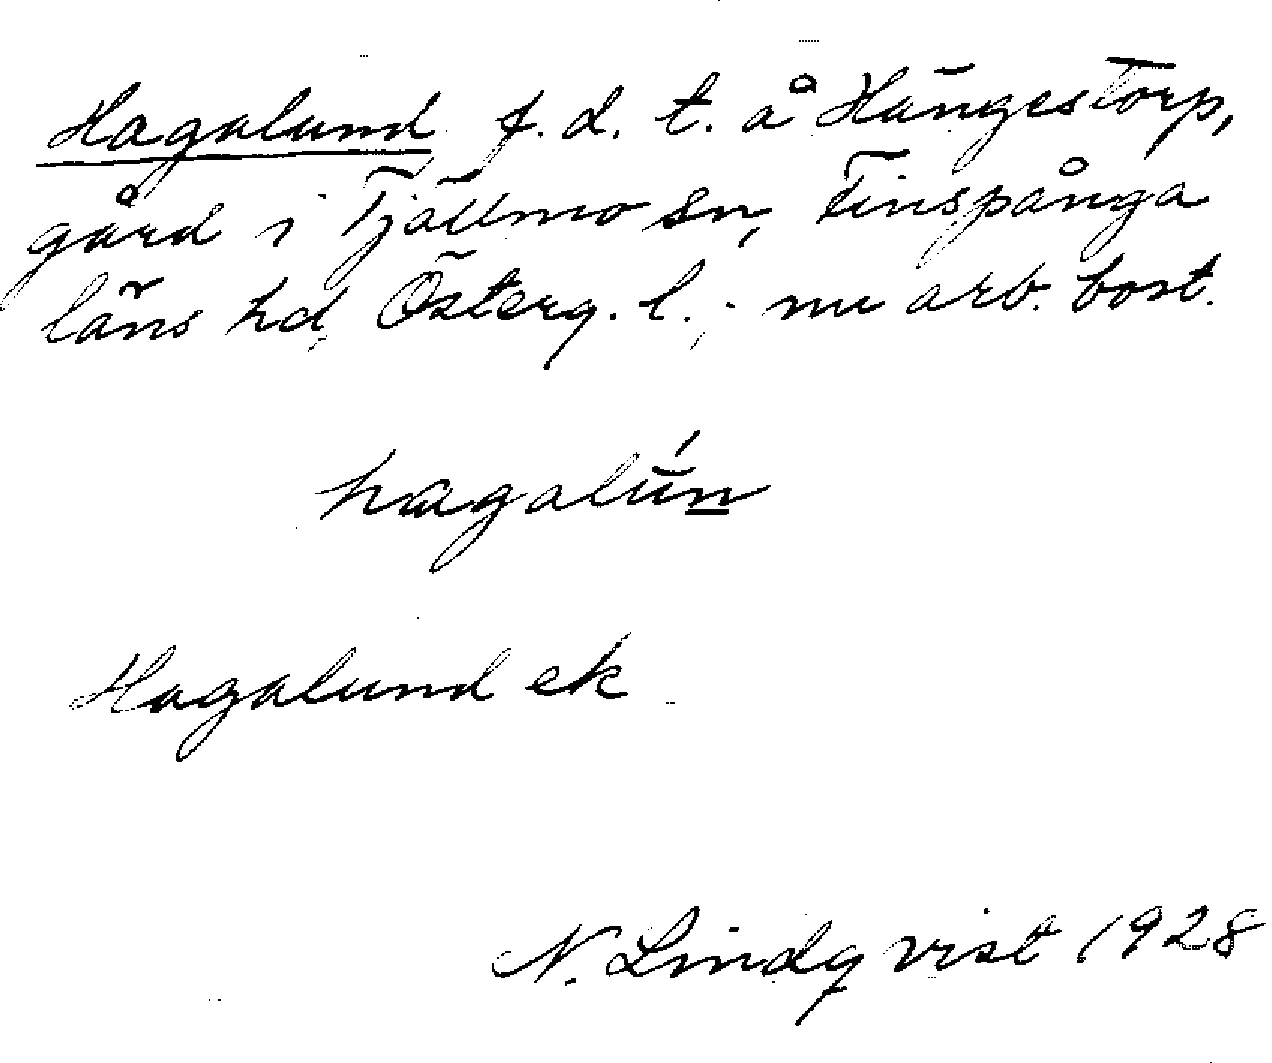 Hagalund f. d. t. å Hängestorp,
gård i Tjällmo sn, Finspånga
läns hd, Österg. l.; nu arb. bost.
hagalún
Hagalund ek
N. Lindqvist 1928